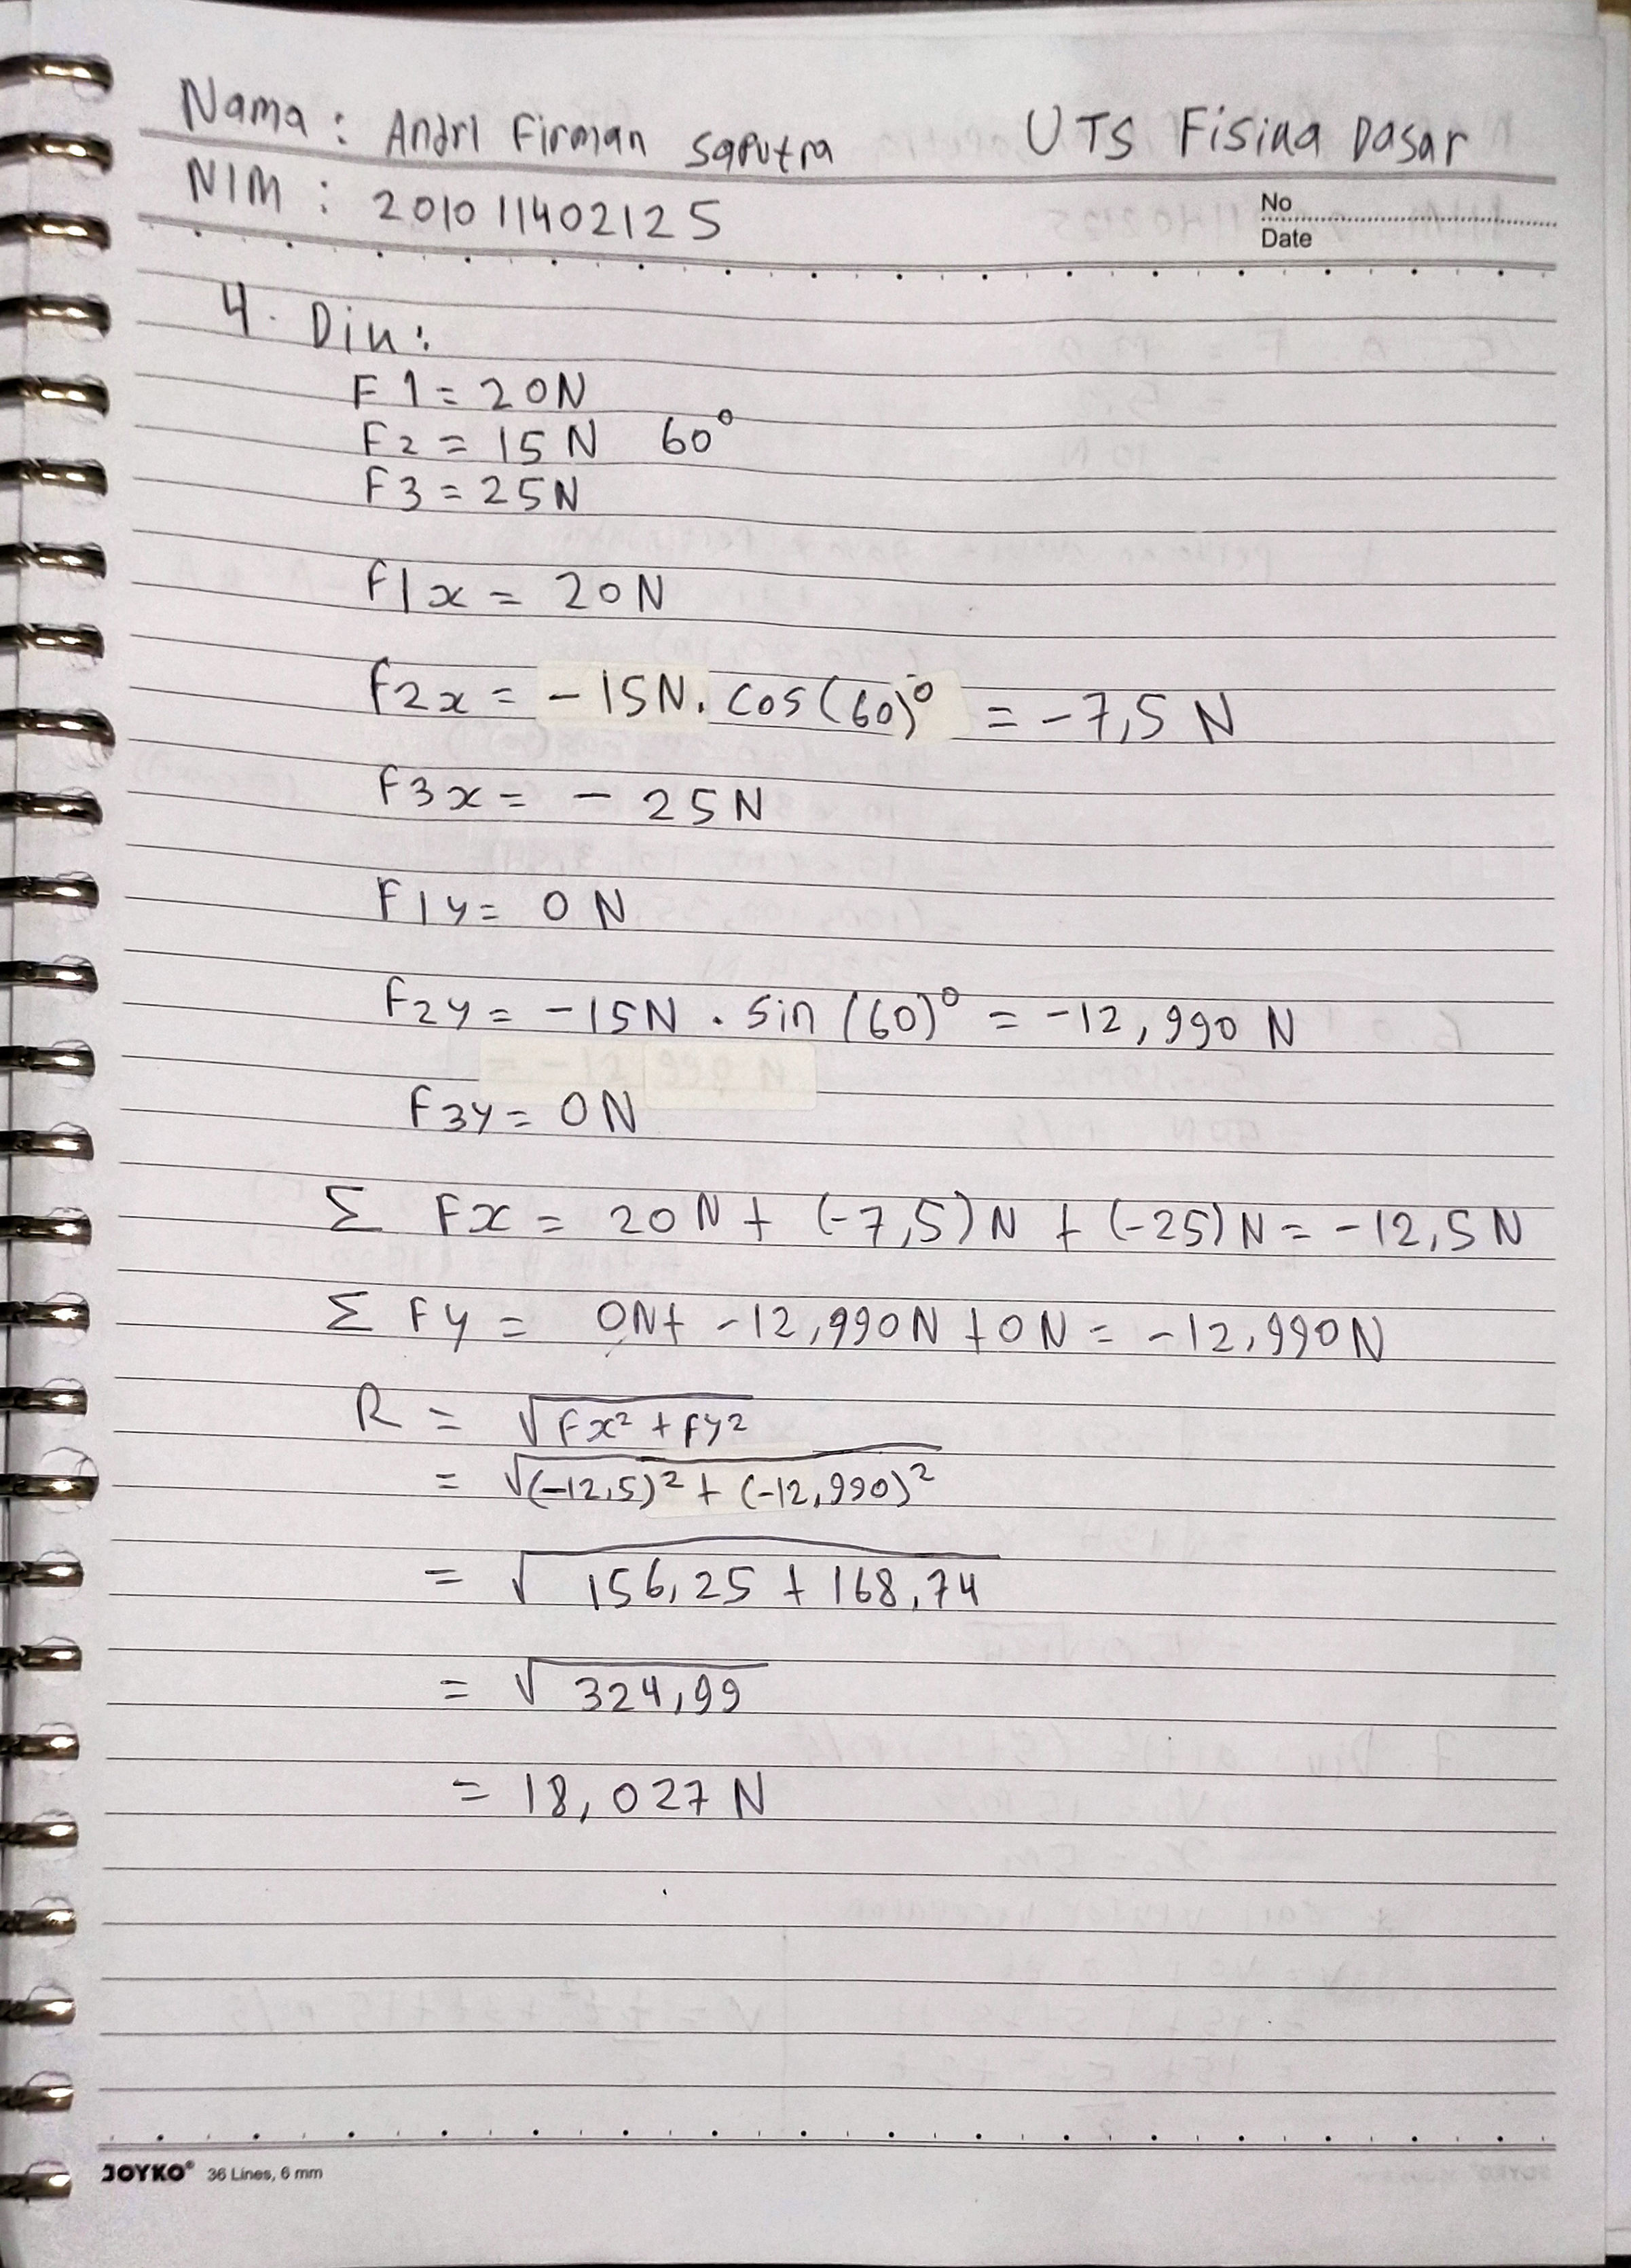 Nama : Andri Firman Saputra UTS Fisika Dasar
NIM : 201011402125
No
Date
4. Dik :
F1 = 20N
F2 = 15 N 60°
F3 = 25N
F1x = 20N
F2x = -15N. cos(60)° = -7,5 N
F3x = - 25N
F1y = 0 N
F2y = -15N . sin (60)° = -12,990 N
F3y = 0N
Σ Fx = 20N + (-7,5)N + (-25)N = -12,5N
Σ Fy = 0N + -12,990N + 0N = -12,990N
R = √Fx² + Fy²
= √(-12,5)² + (-12,990)²
= √156,25 + 168,74
= √324,99
= 18,027 N
JOYKO® 36 Lines, 6 mm